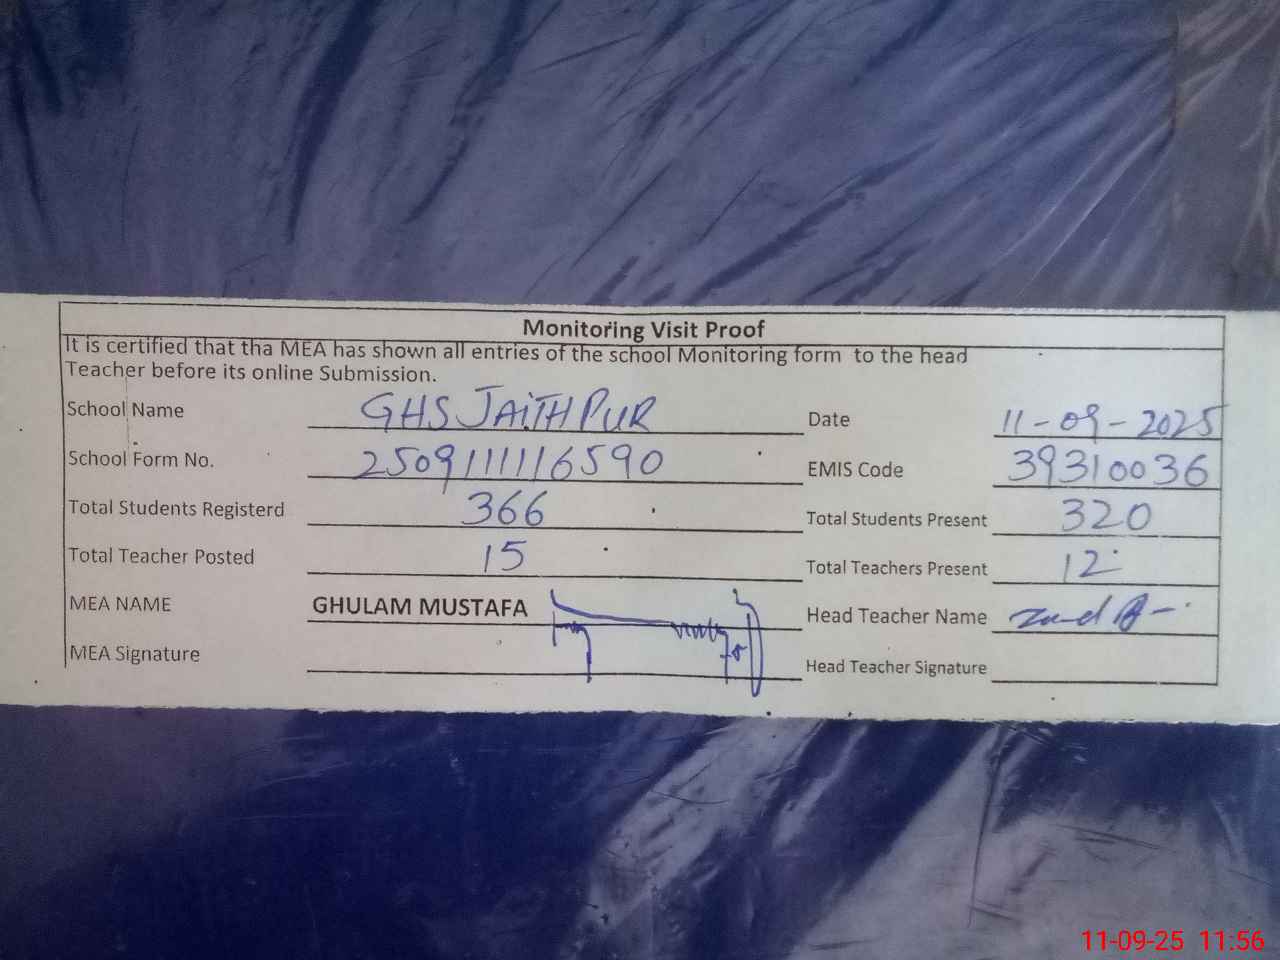 Monitoring Visit Proof
It is certified that tha MEA has shown all entries of the school Monitoring form to the head
Teacher before its online Submission.
School Name GHS JAiTH PUR Date 11-09-2025
School Form No. 2509111116590 EMIS Code 39310036
Total Students Registerd 366 Total Students Present 320
Total Teacher Posted 15 Total Teachers Present 12
MEA NAME GHULAM MUSTAFA Head Teacher Name
MEA Signature Head Teacher Signature
11-09-25 11:56